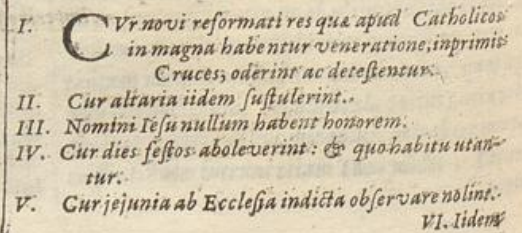 I. CVr novi reformati res quæ apud Catholicos
in magna habentur veneratione, inprimis
Cruces, oderint ac deteſtentur.
II. Cur altaria iidem ſuſtulerint.
III. Nomini Ieſu nullum habent honorem.
IV. Cur dies feſtos aboleverint: & quo habitu utan-
tur.
V. Cur jejunia ab Eccleſia indicta obſervare nolint.
VI. Iidem